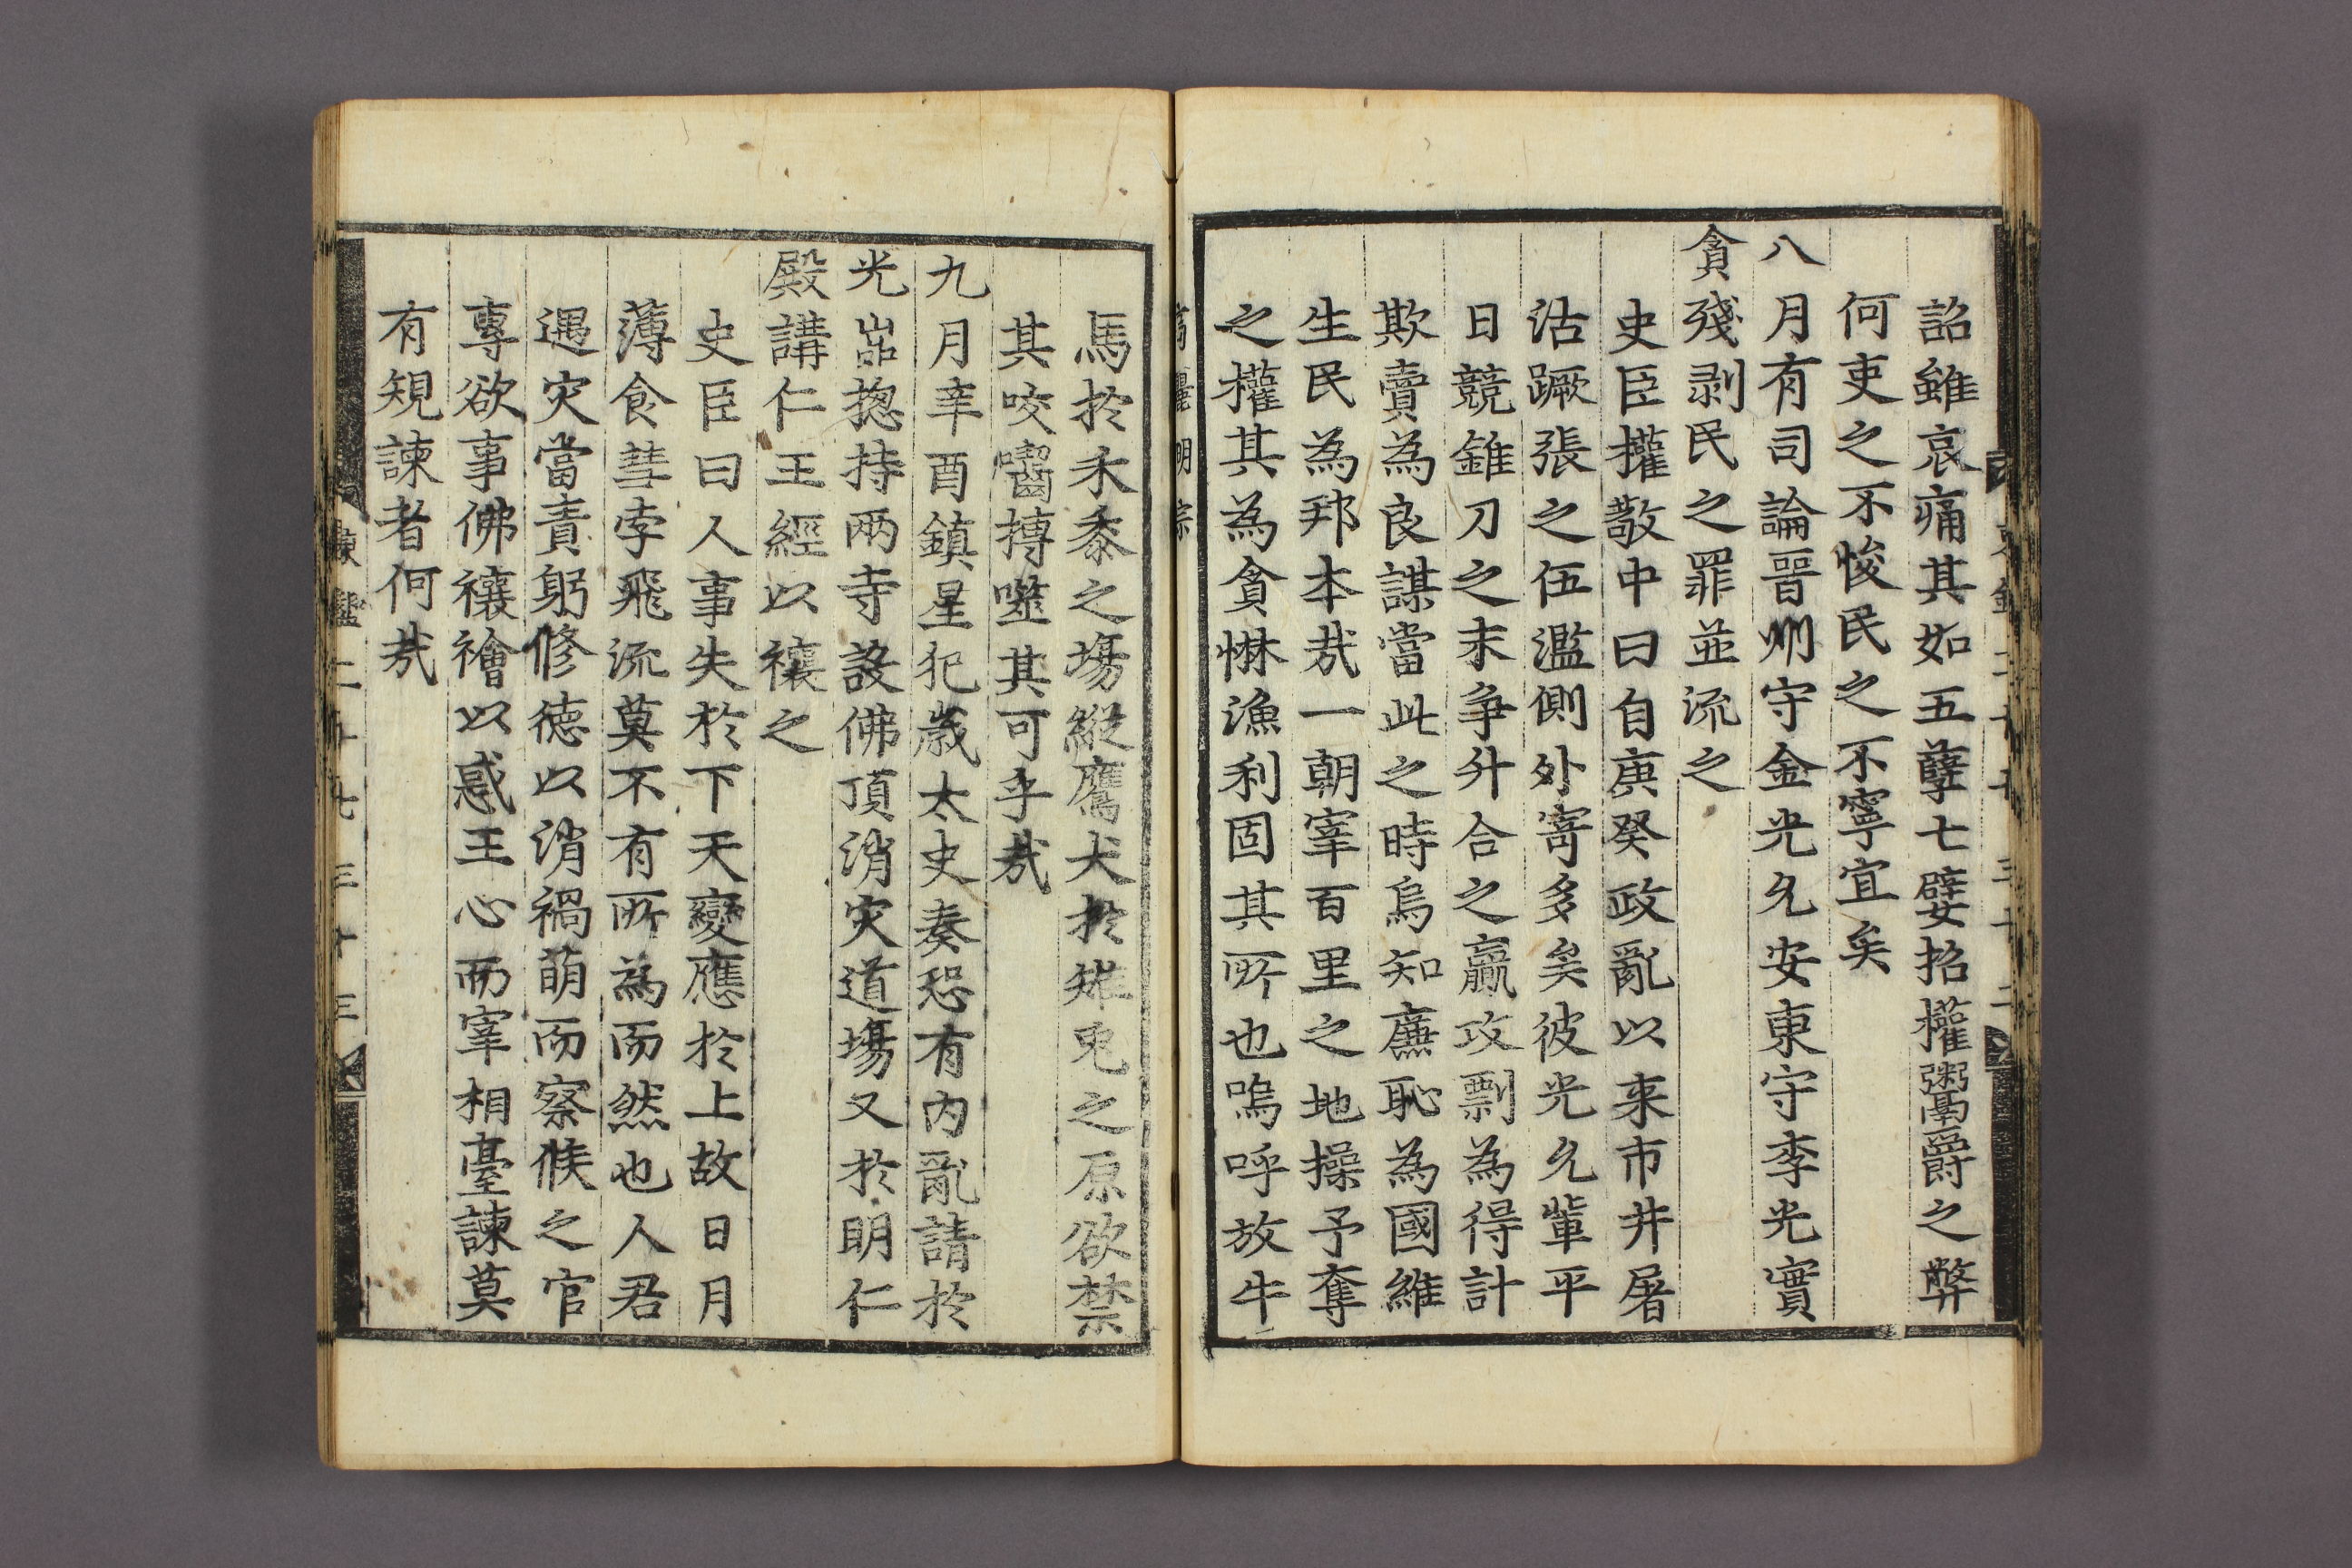 詔雖哀痛其如五孽七嬖招權鬻爵之弊
何吏之不悛民之不寧宜矣
八月有司論晉州守金光允安東守李光實
貪殘剥民之罪並流之
史臣權敬中曰自庚癸政亂以来市井屠
沽蹶張之伍濫側外寄多矣彼光允輩平
日競錐刀之末争升合之贏攻剽為得計
欺賣為良謀當此之時烏知廉恥為國維
生民為邦本㢤一朝宰百里之地操予奪
之權其為貪惏漁利固其所也嗚呼放牛
高麗明宗
馬於禾黍之場縱鷹犬於雉兎之原欲禁
其咬囓摶噬其可乎㢤
九月辛酉鎮星犯歲太史奏恐有内亂請於
光嵓揔持两寺設佛頂消灾道場又於明仁
殿講仁王經以禳之
史臣曰人事失於下天變應於上故日月
薄食彗孛飛流莫不有所為而然也人君
遇灾當責躬修德以消禍萌而察候之官
專欲事佛禳襘以惑王心而宰相臺諫莫
有規諫者何㢤
東鑑二十七 三十三